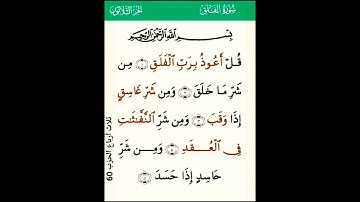 سُورَةُ الفَلَقِ
الجُزْءُ الثَّلَاثُونَ
بِسْمِ اللَّهِ الرَّحْمَٰنِ الرَّحِيمِ
قُلْ أَعُوذُ بِرَبِّ الْفَلَقِ ۝ مِن
شَرِّ مَا خَلَقَ ۝ وَمِن شَرِّ غَاسِقٍ
إِذَا وَقَبَ ۝ وَمِن شَرِّ النَّفَّٰثَٰتِ
فِي الْعُقَدِ ۝ وَمِن شَرِّ
حَاسِدٍ إِذَا حَسَدَ ۝
ثلاث أرباع الحزب 60